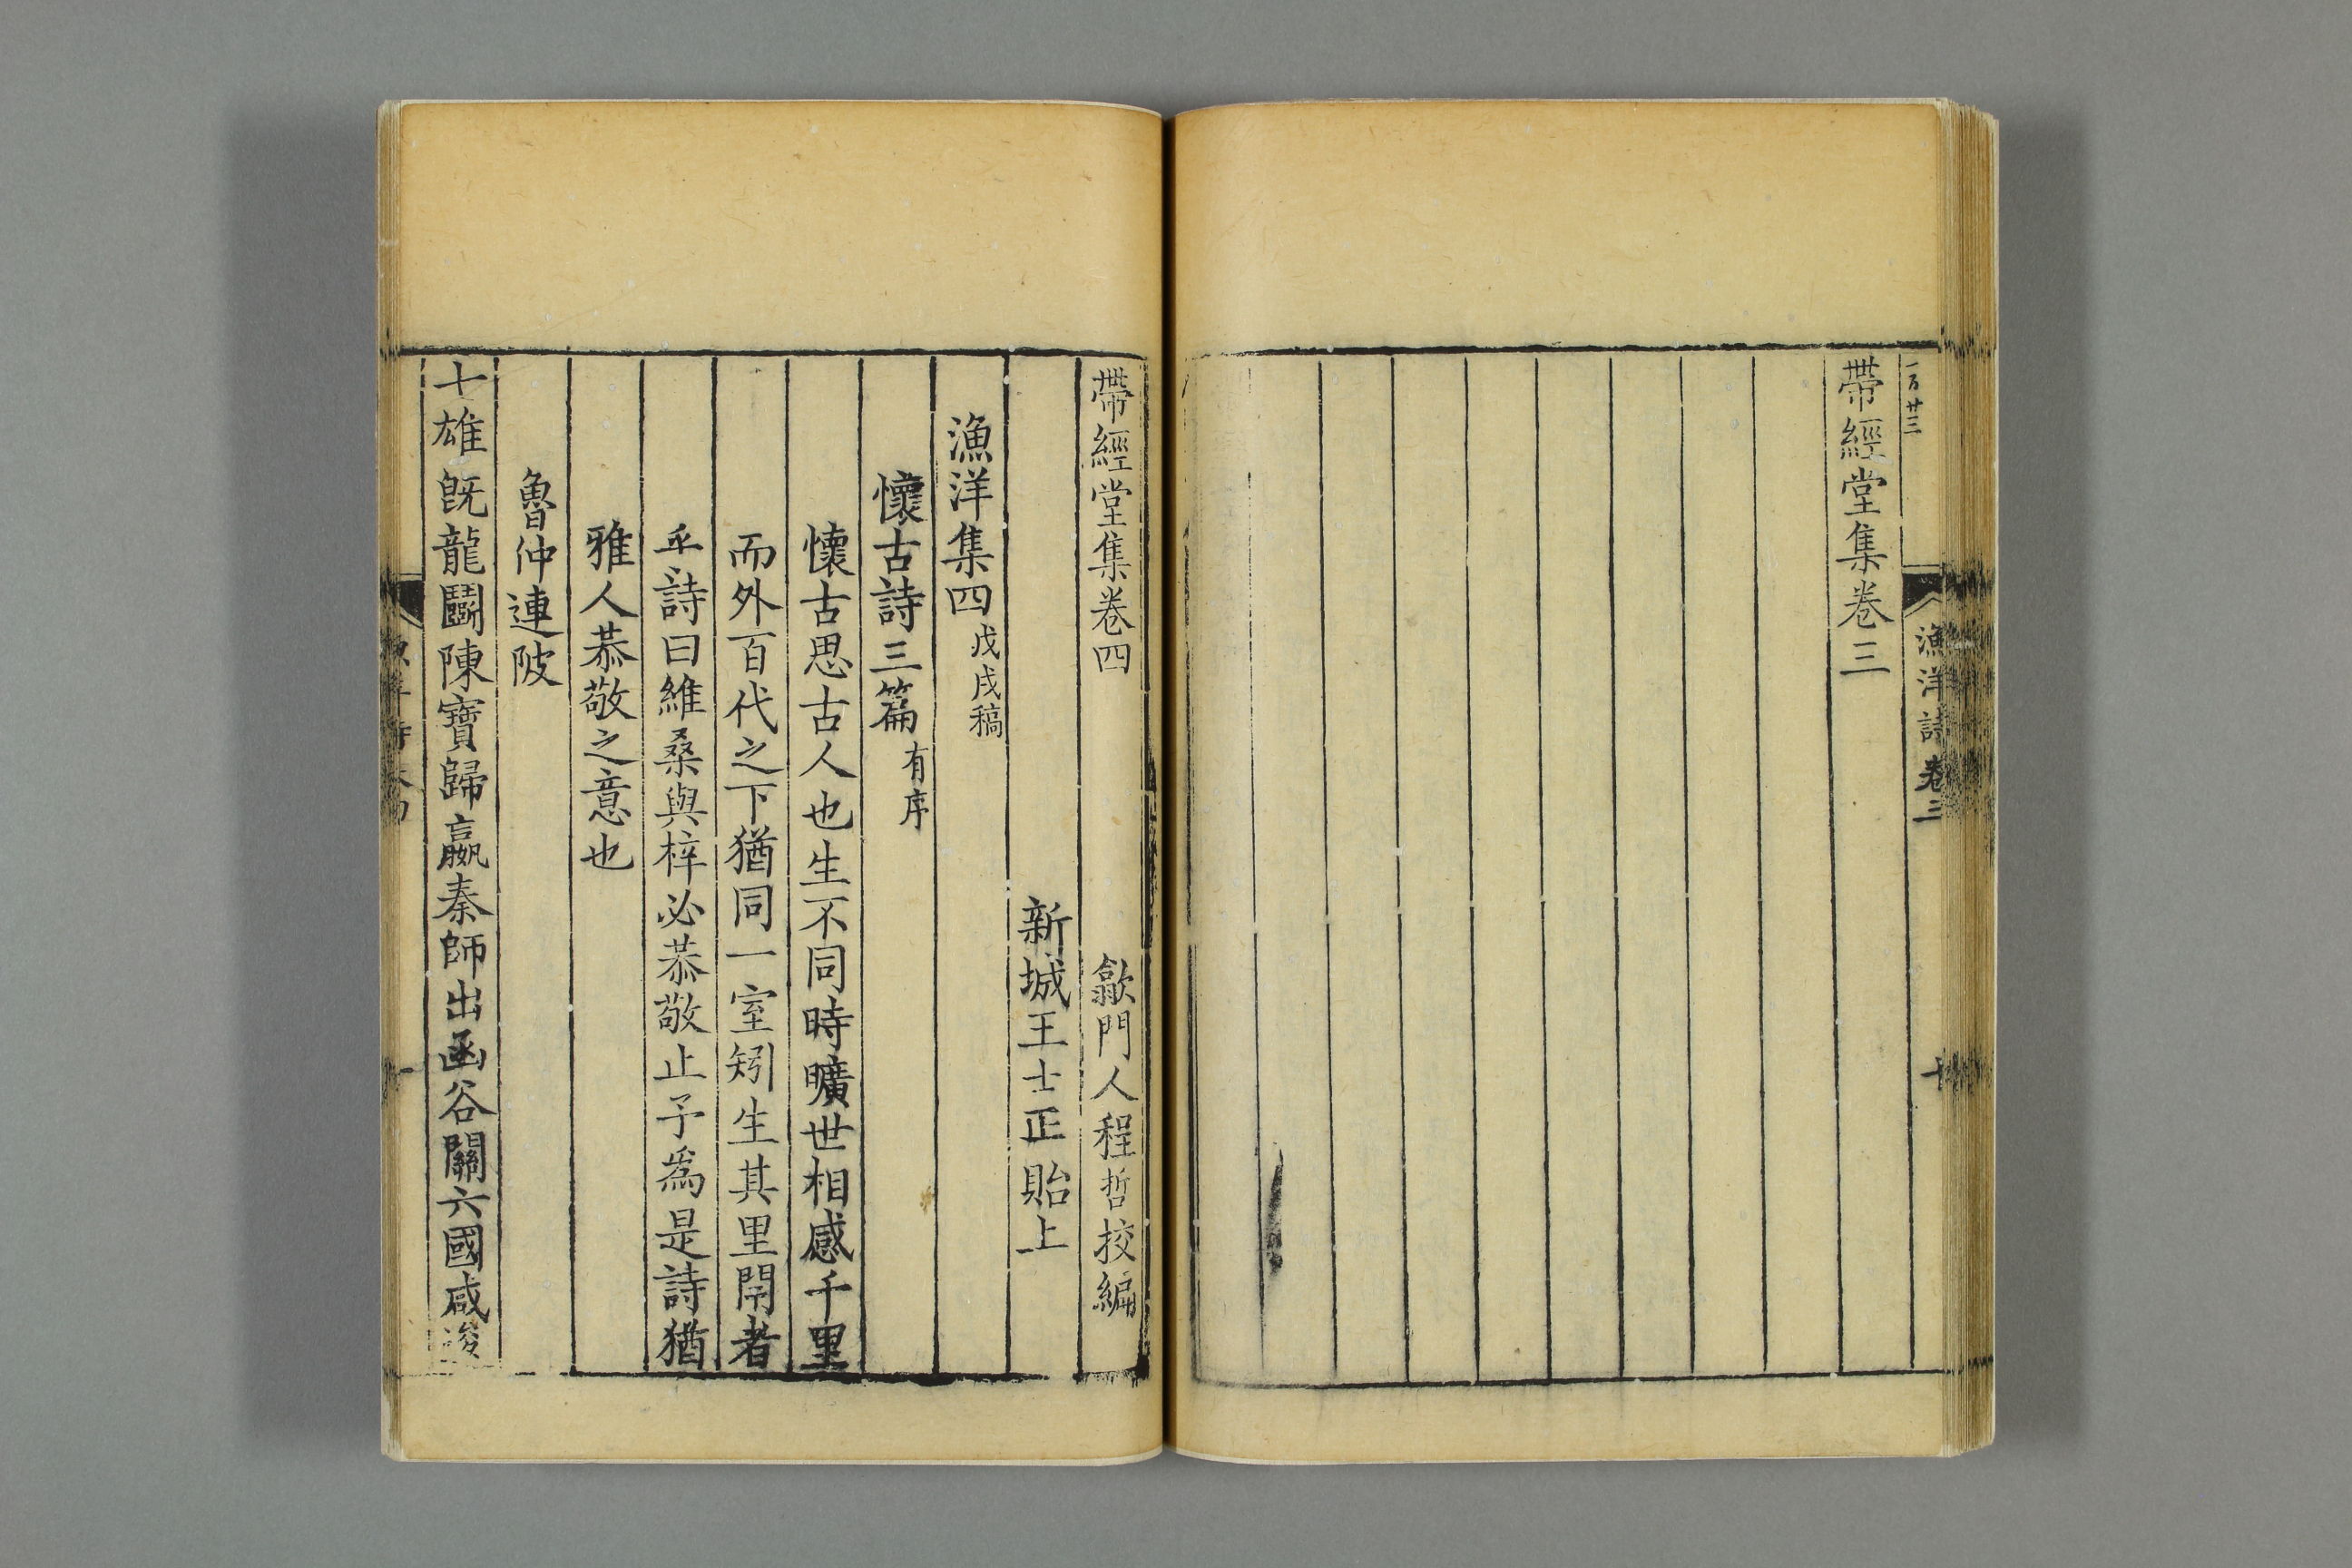 一百廿三
漁洋詩卷三
十
帶經堂集卷三
帶經堂集卷四
歙門人程哲挍編
新城王士正貽上
漁洋集四戊戌稿
懷古詩三篇有序
懷古思古人也生不同時曠世相感千里
而外百代之下猶同一室矧生其里閈者
乎詩曰維桑與梓必恭敬止予為是詩猶
雅人恭敬之意也
魯仲連陂
七雄旣龍鬭陳寶歸嬴秦師出函谷關六國咸逡